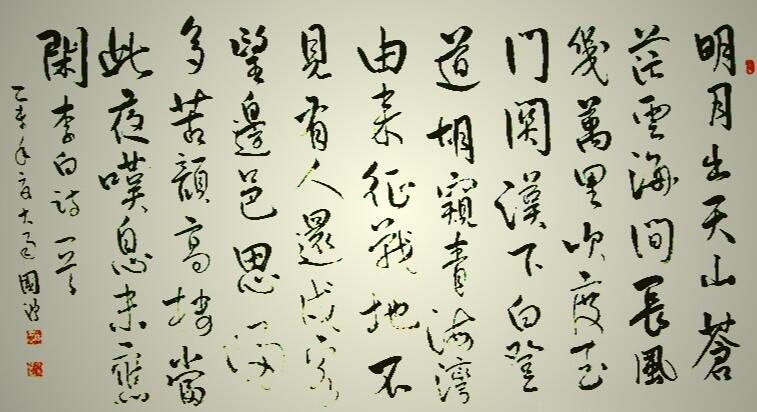 明月出天山蒼
茫雲海間長風
幾萬里吹度玉
門関漢下白登
道胡窺青海灣
由来征戰地不
見有人還戍客
望邊邑思歸
多苦顏高樓當
此夜嘆息未應
閑 李白詩一首
乙未年夏大國